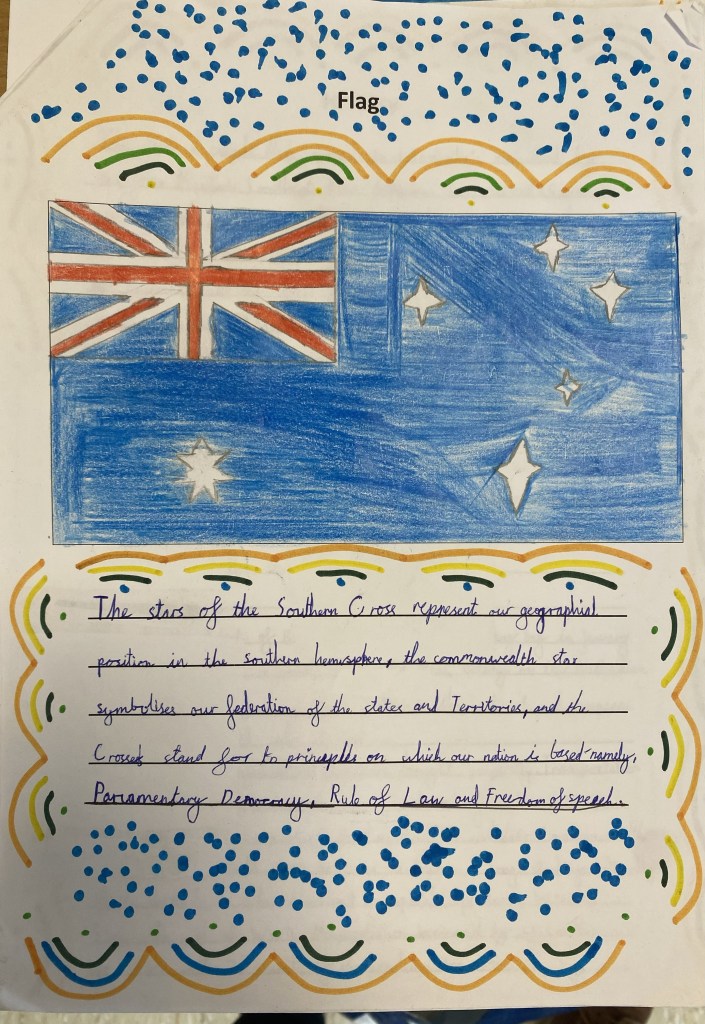 Flag
The stars of the Southern Cross represent our geographial
position in the southern hemisphere, the commonwealth star
symbolises our federation of the states and Territories, and the
Crosses stand for tn principles on which our nation is based-namely,
Parliamentary Democracy, Rule of Law and Freedom of speech.